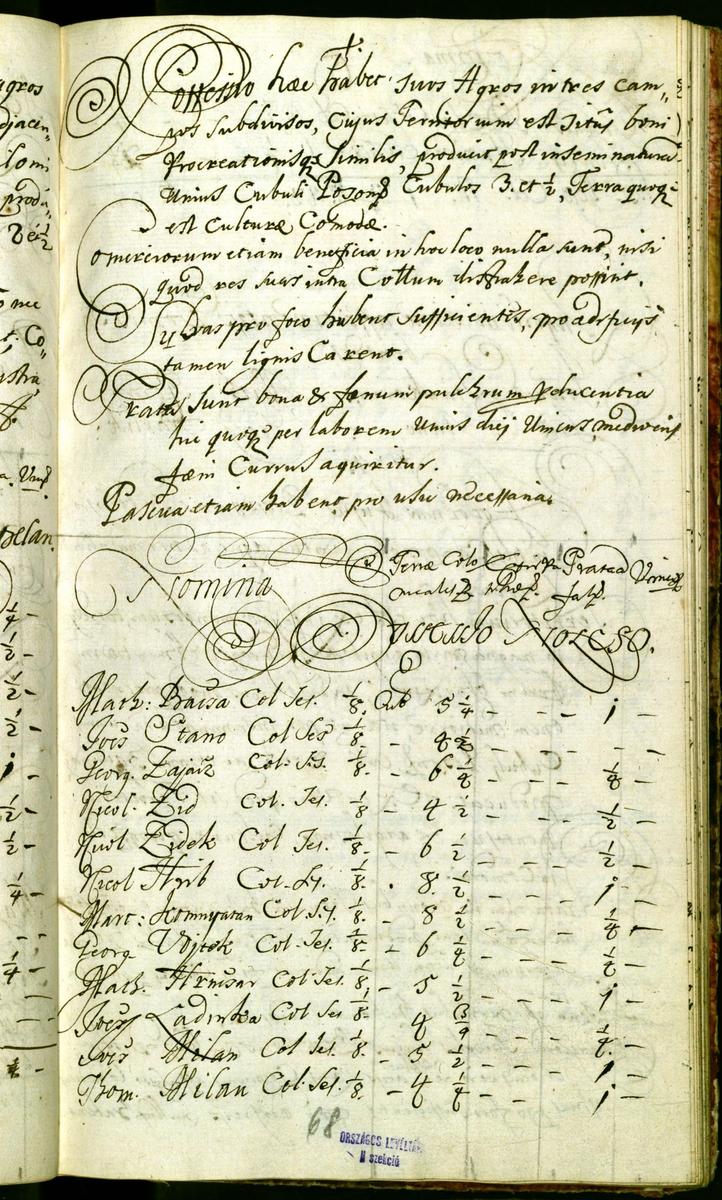 Possessio haec habet suos Agros in tres cam„
pos subdivisos, Cujus Territorium est sitûs boni
Procreationisqȝ similis, producit post inseminaturam
Unius Cubuli Poson: Cubulos 3. et ½, Terra quoqȝ
est Culturae Comodae.
Comerciorum etiam beneficia in hoc loco nulla sunt, nisi
quod res suas intra Cottum distrahere possint.
Sylvas pro foco habent sufficientes, pro aedificijs
tamen lignis Carent.
Prata sunt bona & faenum pulchrum producentia
hic quoqȝ per laborem unius diei Unius
faeni Currus aquiritur.
Pascua etiam habent pro usu necessaria.
Nomina Terrae Colo Prata Vineae
nicales falc.
Possessio
Math: Col Ses. 1/8. Cub 5 ¼ - - - 1 -
Jois Stano Col Ses 1/8. - 4 ½ - - -
Georg. Zajacz Col. Ses. 1/8. - 6 ¼ - - - ¼ -
Nicol. Zid Col. Ses. 1/8 - 4 ½ - - - ½ -
Nicol Zidek Col Ses. 1/8. - 6 ½ - - - ½ -
Nicol Hrib Col. Ses. 1/8. - 8. ½ - - - 1 -
Mart: Col Ses. 1/8. - 8 ½ - - - ¼ -
Georg. Vojtek Col. Ses. 1/8. - 6 ¼ - - - ¼ -
Math. Col Ses. 1/8. - 5 ½ - - - 1 -
Jois Ladinka Col Ses 1/8. 4 ¾ - - - ¼ -
Jois Milan Col Ses. 1/8. - 5 ½ - - - 1 -
Thom. Milan Col. Ses. 1/8. - 4 ¼ - - - 1 -
68
ORSZÁGOS LEVÉLTÁR
II szekció